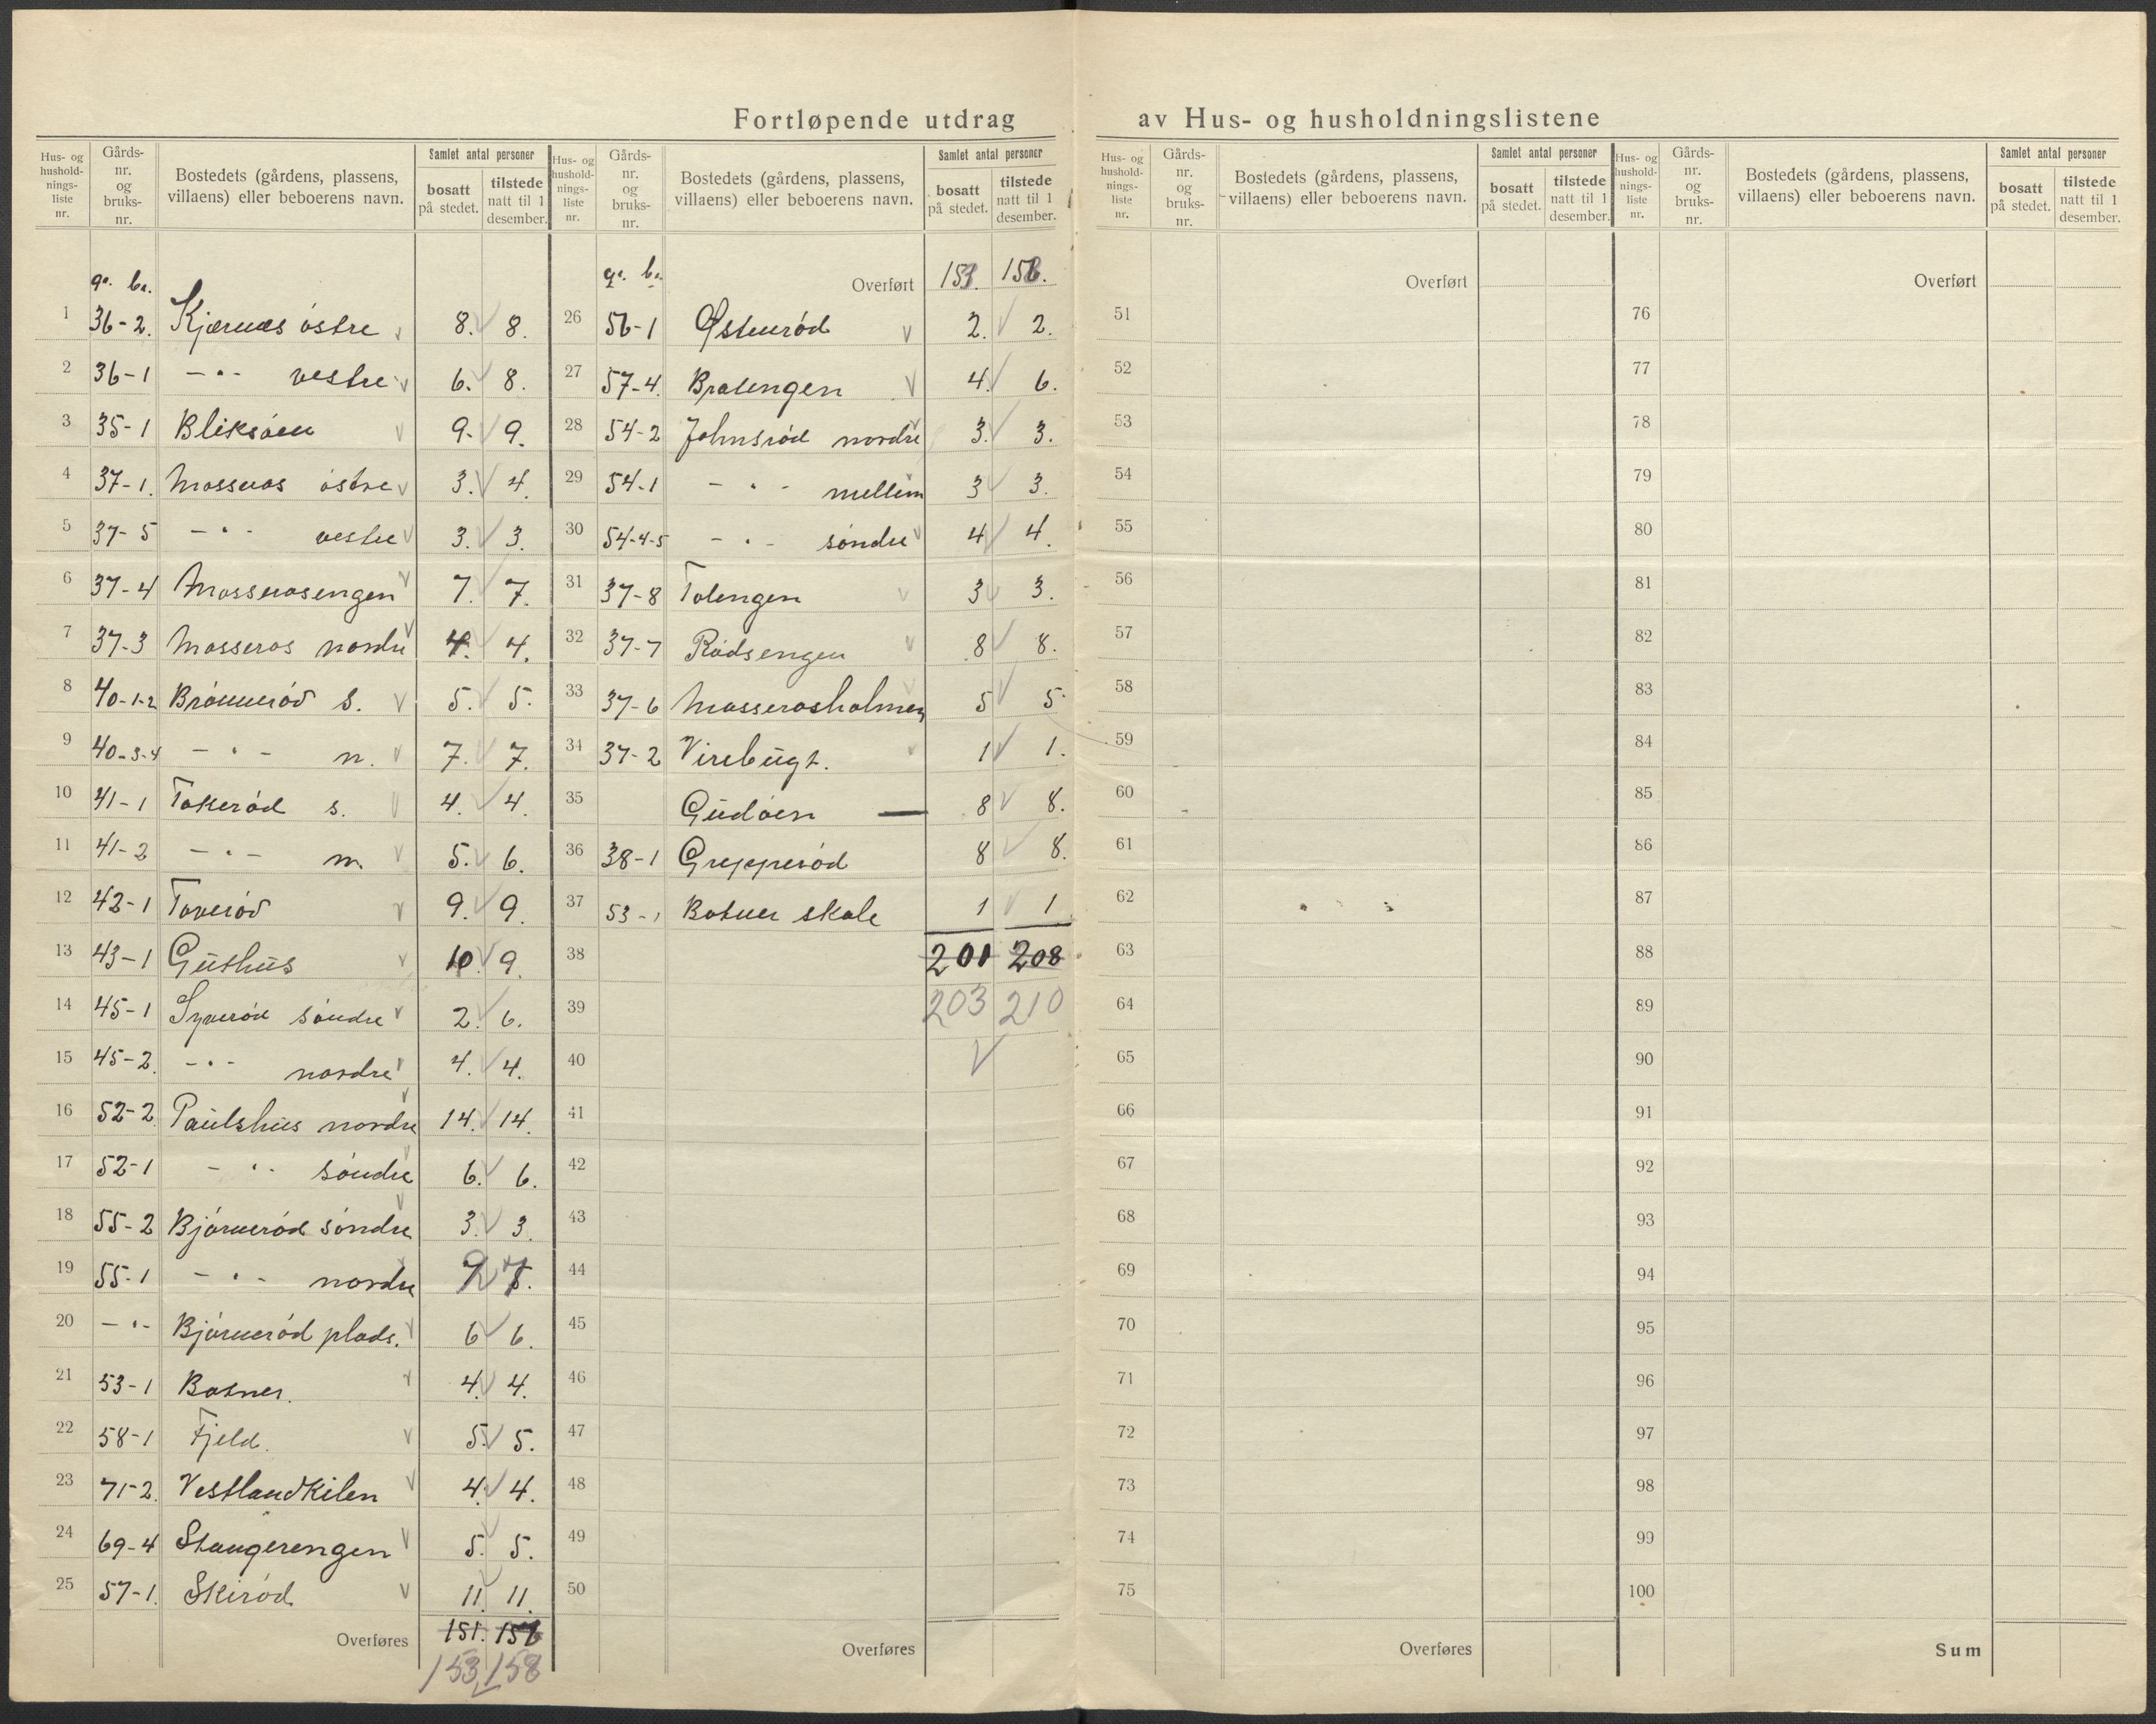 Fortløpende utdrag av Hus- og husholdningslistene
Hus- og husholdnings-liste nr. Gårds-nr. og bruks-nr. Bostedets (gårdens, plassens, villaens) eller beboerens navn. Samlet antal personer bosatt på stedet. tilstede natt til 1 desember.
g. b.
1 36-2. Kjærnæs östre 8. 8.
2 36-1 -"- vestre 6. 8.
3 35-1 Bliksöen 9. 9.
4 37-1. Masseras östre 3. 4.
5 37-5 -"- vestre 3. 3.
6 37-4 Masserasengen 7. 7.
7 37-3 Masseras nordre 4. 4.
8 40-1-2 Brönneröd S. 5. 5.
9 40-3-4 -"- n. 7. 7.
10 41-1 Takeröd s. 4. 4.
11 41-2 -"- n. 5. 6.
12 42-1 Taveröd 9. 9.
13 43-1 Guthus 10. 9.
14 45-1 Syveröd söndre 2. 6.
15 45-2. -"- nordre 4. 4.
16 52-2 Paulshus nordre 14. 14.
17 52-1 -"- söndre 6. 6.
18 55-2 Björneröd söndre 3. 3.
19 55-1 -"- nordre
20 -"- Björneröd plads. 6 6.
21 53-1 Botner. 4. 4.
22 58-1 Fjeld. 5. 5.
23 71-2. Vestlandkilen 4. 4.
24 69-4 Stangerengen 5. 5.
25 57-1. Skiröd 11. 11.
Overføres 151.
153 158
Hus- og husholdnings-liste nr. Gårds-nr. og bruks-nr. Bostedets (gårdens, plassens, villaens) eller beboerens navn. Samlet antal personer bosatt på stedet. tilstede natt til 1 desember.
g. b. Overført 153. 158.
26 56-1 Östenröd 2. 2.
27 57-4. Bratengen 4. 6.
28 54-2 Johnsröd nordre 3. 3.
29 54-1 -"- mellem 3 3.
30 54-4-5 -"- söndre 4 4.
31 37-8 Tolengen 3 3.
32 37-7 Rödsengen 8 8.
33 37-6 Masserasholmen 5 5
34 37-2 Virebugt. 1 1.
35 Gudöen — 8 8.
36 38-1 Grepperöd 8 8.
37 53-1 Botner skole 1 1
38 201 208
39 203 210
40
41
42
43
44
45
46
47
48
49
50
Overføres
Hus- og husholdnings-liste nr. Gårds-nr. og bruks-nr. Bostedets (gårdens, plassens, villaens) eller beboerens navn. Samlet antal personer bosatt på stedet. tilstede natt til 1 desember.
Overført
51
52
53
54
55
56
57
58
59
60
61
62
63
64
65
66
67
68
69
70
71
72
73
74
75
Overføres
Hus- og husholdnings-liste nr. Gårds-nr. og bruks-nr. Bostedets (gårdens, plassens, villaens) eller beboerens navn. Samlet antal personer bosatt på stedet. tilstede natt til 1 desember.
Overført
76
77
78
79
80
81
82
83
84
85
86
87
88
89
90
91
92
93
94
95
96
97
98
99
100
Sum